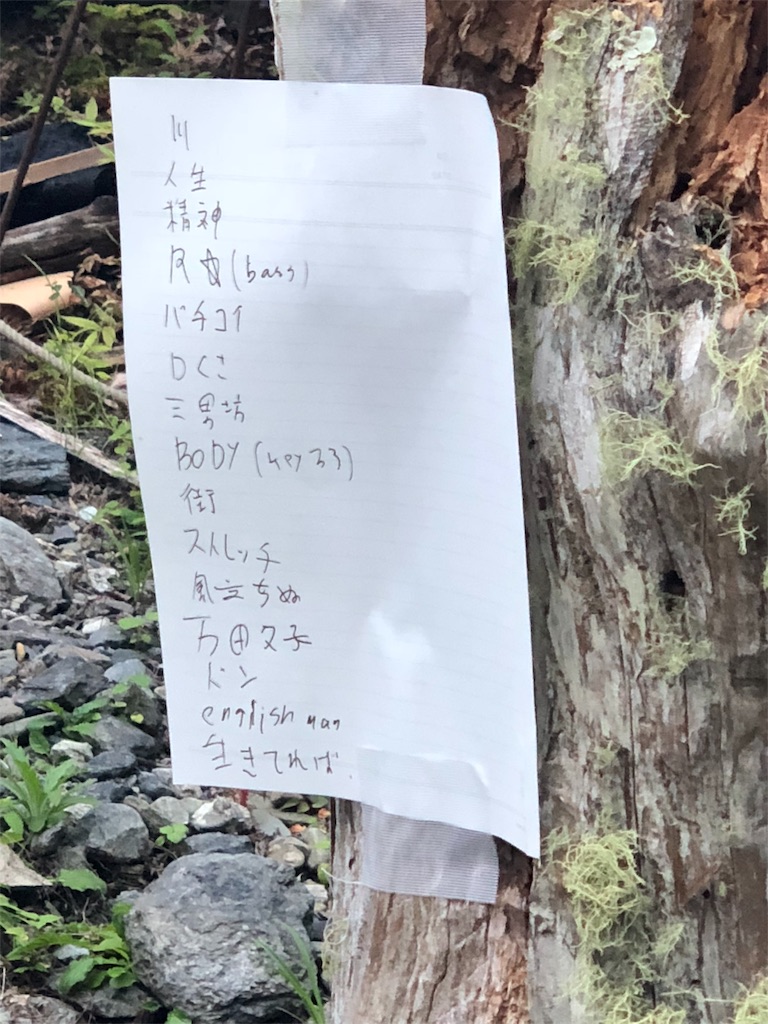 川
人生
精神
(bass)
バチコイ
ひくさ
三男坊
BODY (key ろろ)
街
ストレッチ
風立ちぬ
万田文子
ドン
english man
生きてれば.